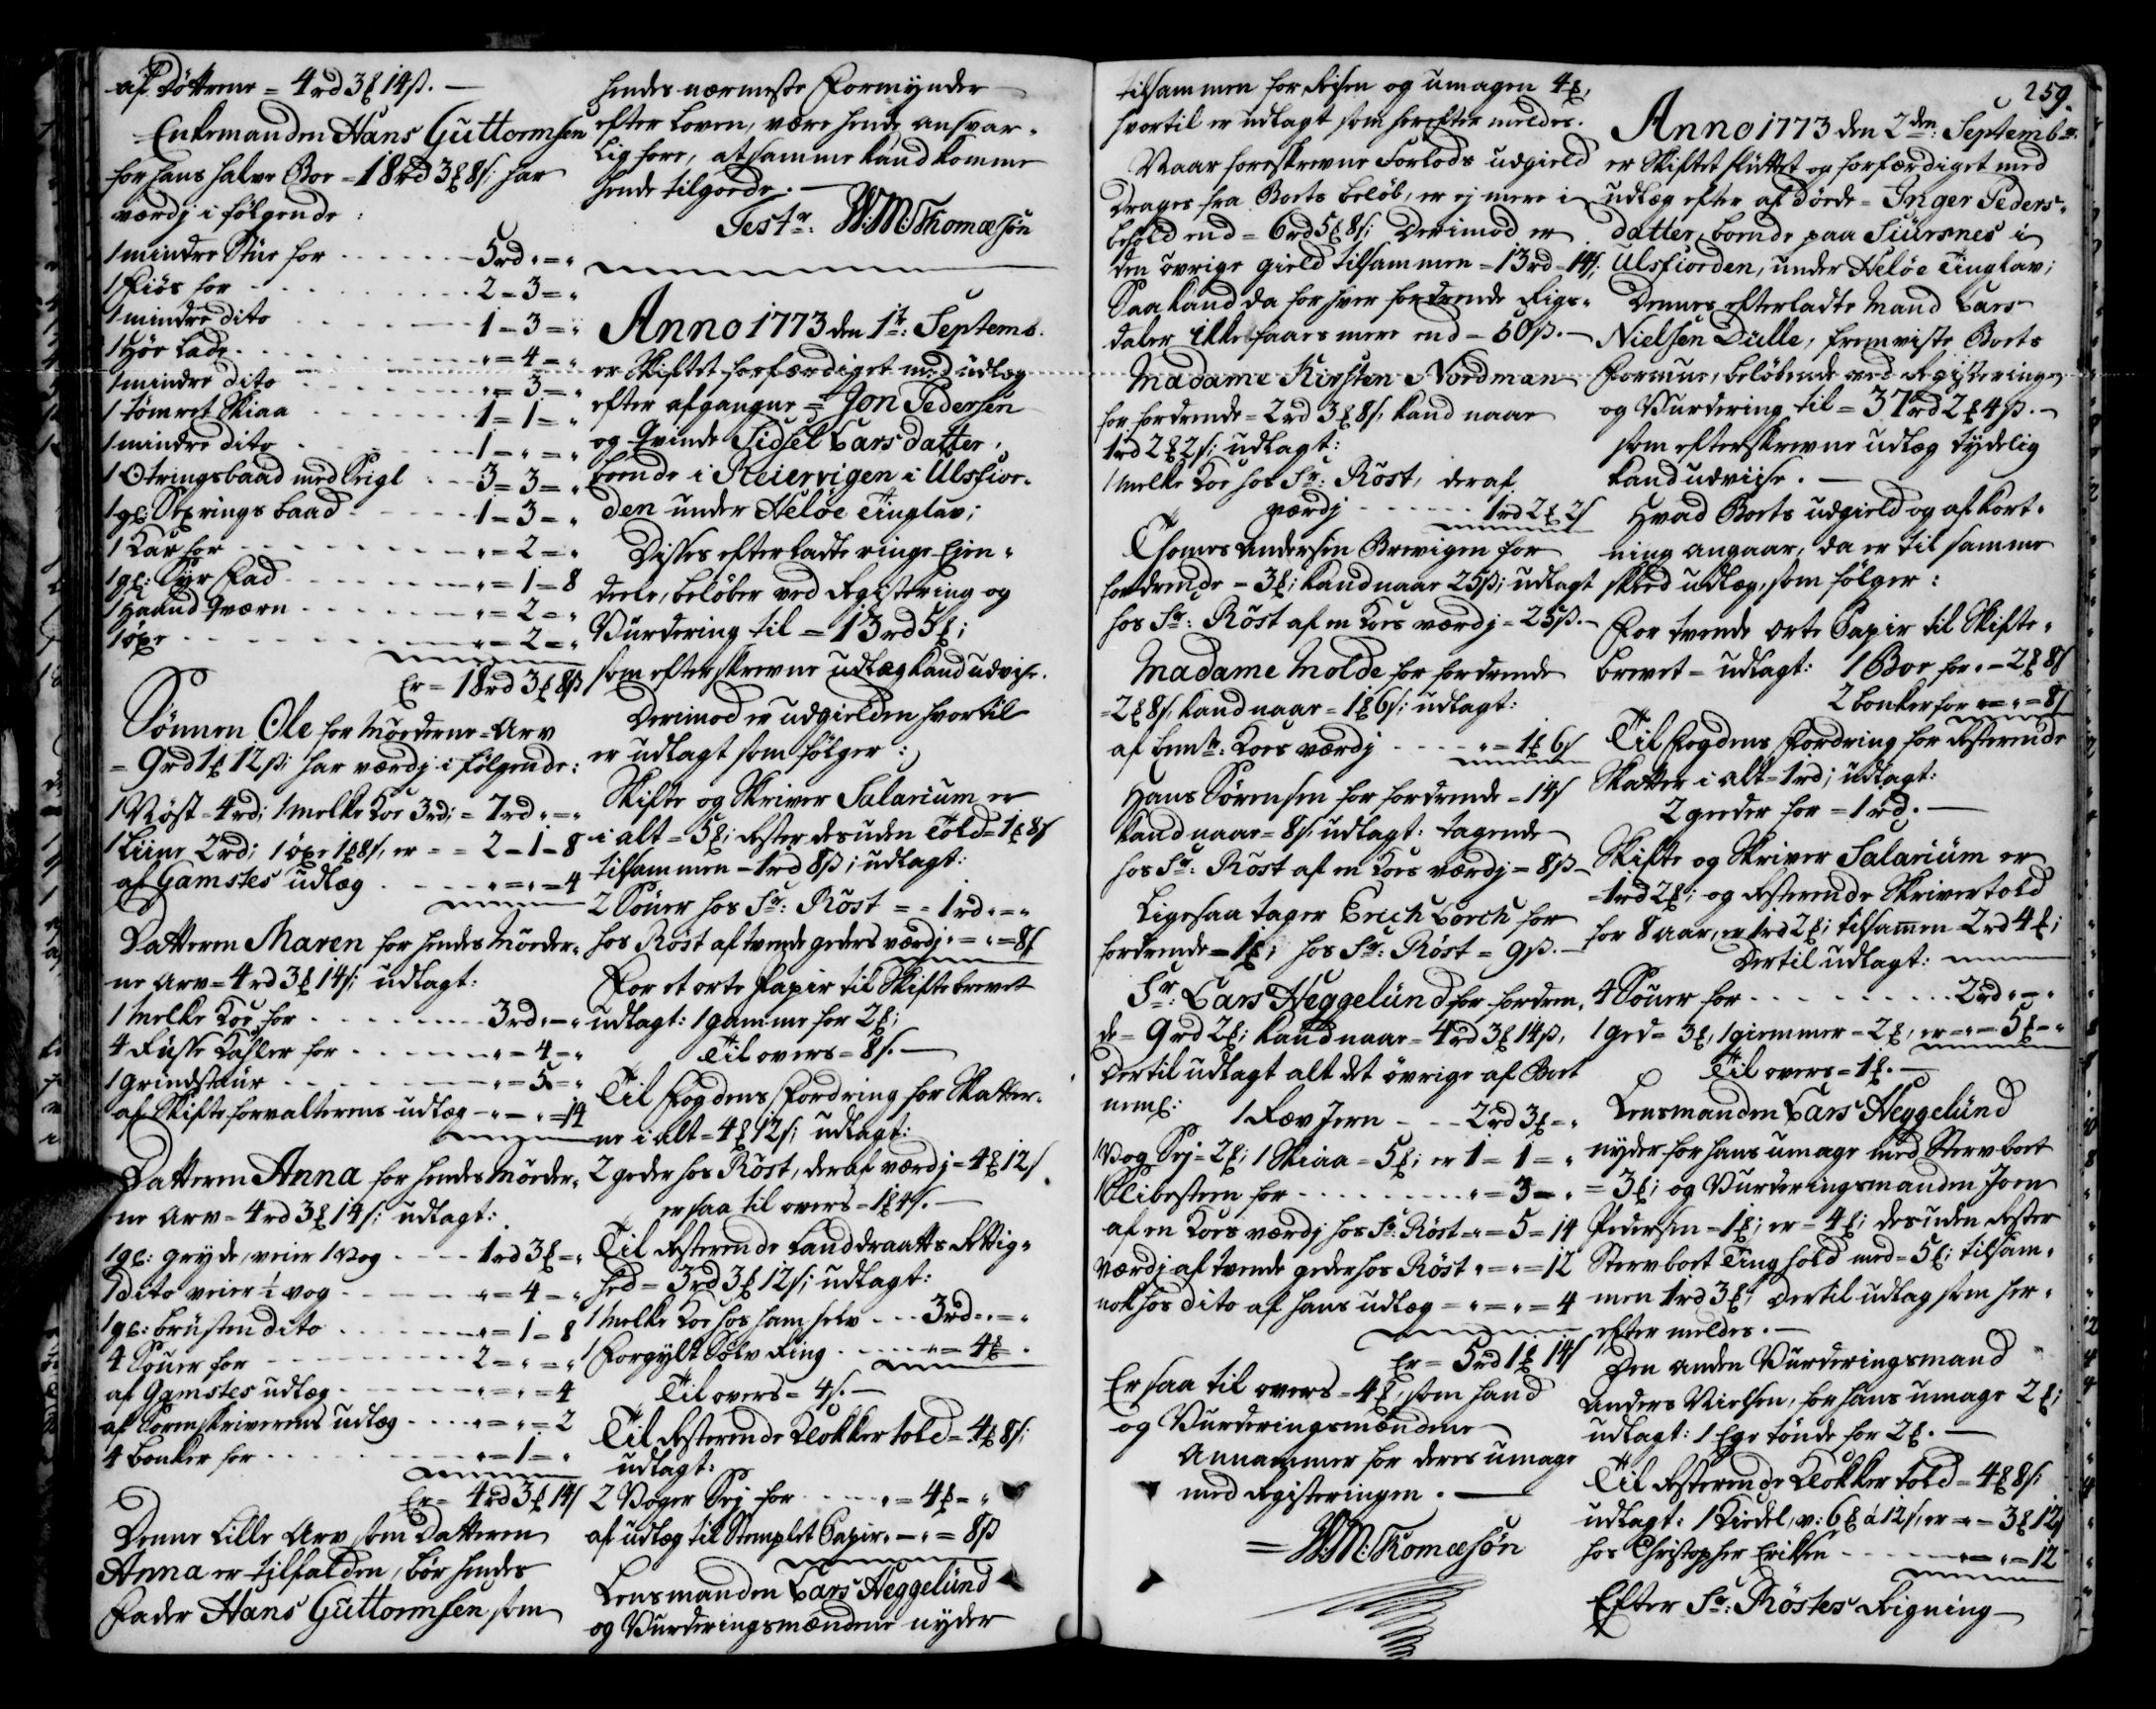 af Døttrene = 4rd 3℔ 14ß. —
Enkemanden Hans Guttormsen
for hans halve Boe = 18rd 3℔ 8ß; har
værdj i følgende:
1 mindre Stue for - - - - 5rd „ = „
1 Fiøs for - - - - 2 = 3 = „
1 mindre dito - - - - 1 = 3 = „
1 Høe Lade - - - - „ = 4 = „
1 mindre dito - - - - „ = 3 = „
1 tømret Skiaa - - - - 1 = 1 = „
1 mindre dito - - - - 1 = „ = „
1 Otringsbaad med Seigl - - 3 = 3 = „
1 gl: Sexrings baad - - - - 1 = 3 = „
1 Kar for - - - - „ = 2 = „
1 gl: Syr Fad - - - - „ = 1 = 8
1 Haand Qværn - - - - „ = 2 = „
1 øxe - - - - „ = 2 = „
Er = 18rd 3℔ 8ß
Sønnen Ole for Møderne = Arv
= 9rd 1℔ 12ß; har værdj i følgende:
1 Nøst = 4rd; 1 melke Koe 3rd; = 7rd „ = „
1 Liine 2rd; 1 øxe 1℔ 8ß, er = = 2 = 1 = 8
af Gamstes udlæg - - - - „ = „ = 4
Datteren Maren for hendes Møder=
ne Arv = 4rd 3℔ 14ß; udlagt:
1 Melke Koe for - - - - 3rd „ = „
4 Russe Kahler for - - - - „ = 4 = „
1 Grindstaur - - - - „ = 5 = „
af Skifteforvalterens udlæg - „ = „ = 14
Datteren Anna for hendes Møder=
ne Arv = 4rd 3℔ 14ß; udlagt:
1 gl: gryde, veier 1 Vog - - - - 1rd 3℔ = „
1 dito veier ½ vog - - - - „ = 4 = „
1 gl: brusten dito - - - - „ = 1 = 8
4 Souer for - - - - 2 = „ = „
af Gamstes udlæg - - - - „ = „ = 4
af Sorenskriverens udlæg - - - - „ = „ = 2
4 bonker for - - - - „ = 1 = „
Er = 4rd 3℔ 14ß
Denne lille Arv som Datteren
Anna er tilfalden, bør hendes
Fader Hans Guttormsen som
hendes nærmeste Formynder
efter Loven, være hende ansvar=
lig fore, at samme kand komme
hende tilgode. —
Testr: W: M: Thomæsøn
Anno 1773 den 1te: Septemb.
er Skiftet forfærdiget med udlæg
efter afgangne = Jon Pedersen
og Qvinde Sidsel Larsdatter,
boende i Reiervigen i Ulsfior=
den under Heløe Tinglav;
Disses efterladte ringe Eien=
deele, beløber ved Registering og
Vurdering til = 13rd 5℔;
som efterskrevne udlæg kand udvise.
Derimod er udgielden hvortil
er udlagt som følger:
Skifte og Skriver Salarium er
i alt = 5℔; Rester desuden Told = 1℔ 8ß
tilsammen = 1rd 8ß; udlagt:
2 Souer hos Sr: Röst = = 1rd „ = „
hos Röst af tvende geders værdj „ = „ = 8ß
For et orte Papir til Skiftebrevet
udlagt: 1 gamme for 2℔;
Til overs = 8ß. —
Til Fogdens Fordring for Skatter=
ne i alt = 4℔ 12ß; udlagt:
2 geder hos Röst, deraf værdj = 4℔ 12ß.
er saa til overs = 1℔ 4ß. —
Til Resterende Landdraatts Rettig=
hed = 3rd 3℔ 12ß; udlagt:
1 Melke Koe hos ham selv - - - 3rd „ = „
1 Forgylt Sølv Ring - - - - „ = 4℔ = „
Til overs = 4ß. —
Til Resterende Klokker told = 4℔ 8ß;
udlagt:
2 Voger Sej for - - - - „ = 4℔ = „
af udlæg til Stemplet Papir „ = „ = 8ß
Lensmanden Lars Heggelund
og Vurderingsmændene nyder
tilsammen for Reisen og umagen 4℔,
hvortil er udlagt som herefter meldes.
Naar foreskrevne Forlods udgield
drages fra Boets beløb, er ej mere i
behold end = 6rd 5℔ 8ß; Derimod er
den øvrige gield tilsammen = 13rd = 14ß;
Saa kand da for hver fordrende Rigs=
daler ikke faaes mere end = 50ß. —
Madame Kirsten Nordman
for fordrende = 2rd 3℔ 8ß, kand naae
1rd 2℔ 2ß; udlagt:
1 melke Koe hos Sr: Röst, deraf
værdj - - - - 1rd 2℔ 2ß
Thomes Andersen Brevigen for
fordrende = 3℔; kand naae 25ß; udlagt
hos Sr: Röst af en Koes værdj = 25ß. —
Madame Molde for fordrende
= 2℔ 8ß, kand naae = 1℔ 6ß; udlagt:
af bemte: Koes værdj - - - - „ = 1℔ 6ß
Hans Sørensen for fordrende = 14ß
kand naae = 8ß, udlagt: tagende
hos Sr: Röst af en Koes værdj = 8ß —
Ligesaa tager Erich Lorch for
fordrende = 1℔; hos Sr: Röst = 9ß. —
Sr: Lars Heggelund for fordren=
de = 9rd 2℔; kand naae = 4rd 3℔ 14ß,
dertil udlagt alt det øvrige af Boet
neml: 1 Ræv Jern - - 2rd 3℔ = „
1 Vog Sej = 2℔; 1 Skiaa = 5℔; er 1 = 1 = „
1 Slibesteen for - - - - „ = 3 = „
af en Koes værdj hos Sr: Röst = „ = 5 = 14
Værdj af tvende geder hos Röst „ = „ = 12
nok hos dito af hans udlæg = „ = „ = 4
Er = 5rd 1℔ 14ß
Er saa til overs = 4℔, som hand
og Vurderingsmændene
Annammer for deres umage
med Registeringen. —
= W: M: Thomæsøn
259.
Anno 1773 den 2den: Septembr.
er Skiftet sluttet og forfærdiget med
udlæg efter afdøde = Inger Peders=
datter, boende paa Siursnes i
Ulsfiorden, under Heløe Tinglav;
Dennes efterladte Mand Lars
Nielsen Dülle, fremviste Boets
Formue, beløbende ved Registering
og Vurdering til = 37rd 2℔ 4ß. —
som efterskrevne udlæg tydelig
kand udviise. —
Hvad Boets udgield og afkort=
ning angaar, da er til samme
skeed udlæg, som følger:
For tvende orte Papir til Skifte=
brevet = udlagt: 1 Boe for „ = 2℔ 8ß
2 bonker for „ = „ = 8ß
Til Fogdens Fordring for Resterende
Skatter i alt = 1rd; udlagt:
2 geder for = 1rd. —
Skifte og Skriver Salarium er
= 1rd 2℔; og Resterende Skrivertold
for 8 aar, er 1rd 2℔; tilsammen 2rd 4℔;
dertil udlagt:
4 Souer for - - - - 2rd „ = „
1 ged = 3℔, 1 giemmer = 2℔, er = „ = 5℔ = „
Til overs = 1℔. —
Lensmanden Lars Heggelund
nyder for hans umage med Stervboet
= 3℔; og Vurderingsmanden Joen
Pedersen = 1℔; er = 4℔; desuden Rester
Stervboet Ting hold med = 5℔; tilsam=
men 1rd 3℔; dertil udlag som her=
efter meldes. —
Den anden Vurderingsmand
Anders Nielsen, for hans umage 2℔;
udlagt: 1 Ege tønde for 2℔. —
Til Resterende Klokker told = 4℔ 8ß;
udlagt: 1 Kiedel, v: 6℔ á 12ß, er = „ = 3℔ 12ß
hos Christopher Eriksen - - - - „ = „ = 12
Efter Sr: Röstes Rigning